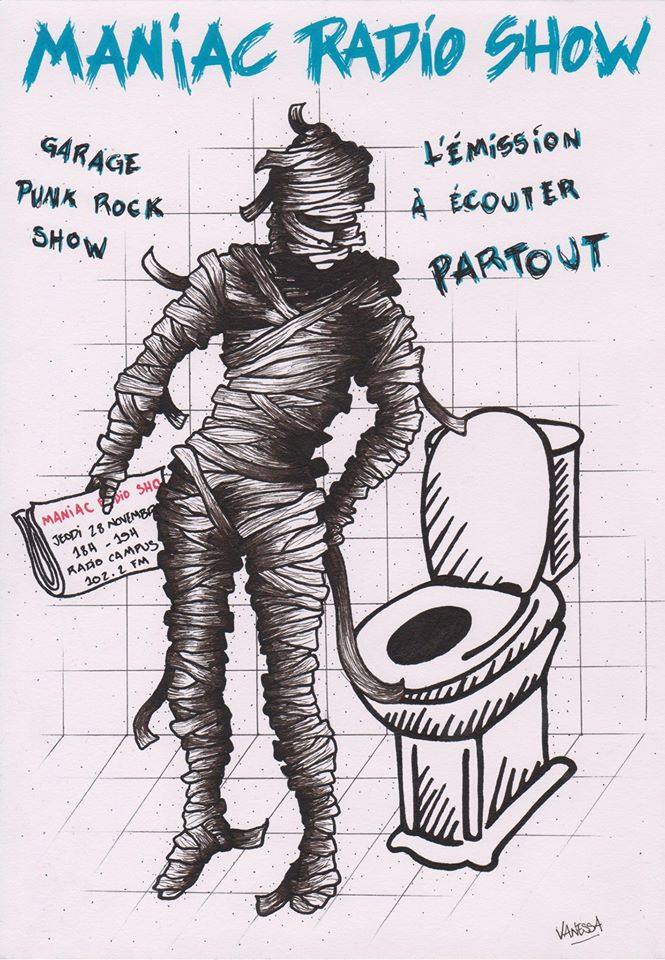 MANIAC RADIO SHOW
GARAGE
PUNK ROCK
SHOW
L'ÉMISSION
À ÉCOUTER
PARTOUT
MANIAC RADIO SHO
JEUDI 28 NOVEMBR
18H - 19H
RADIO CAMPUS
102.2 FM
VANESSA